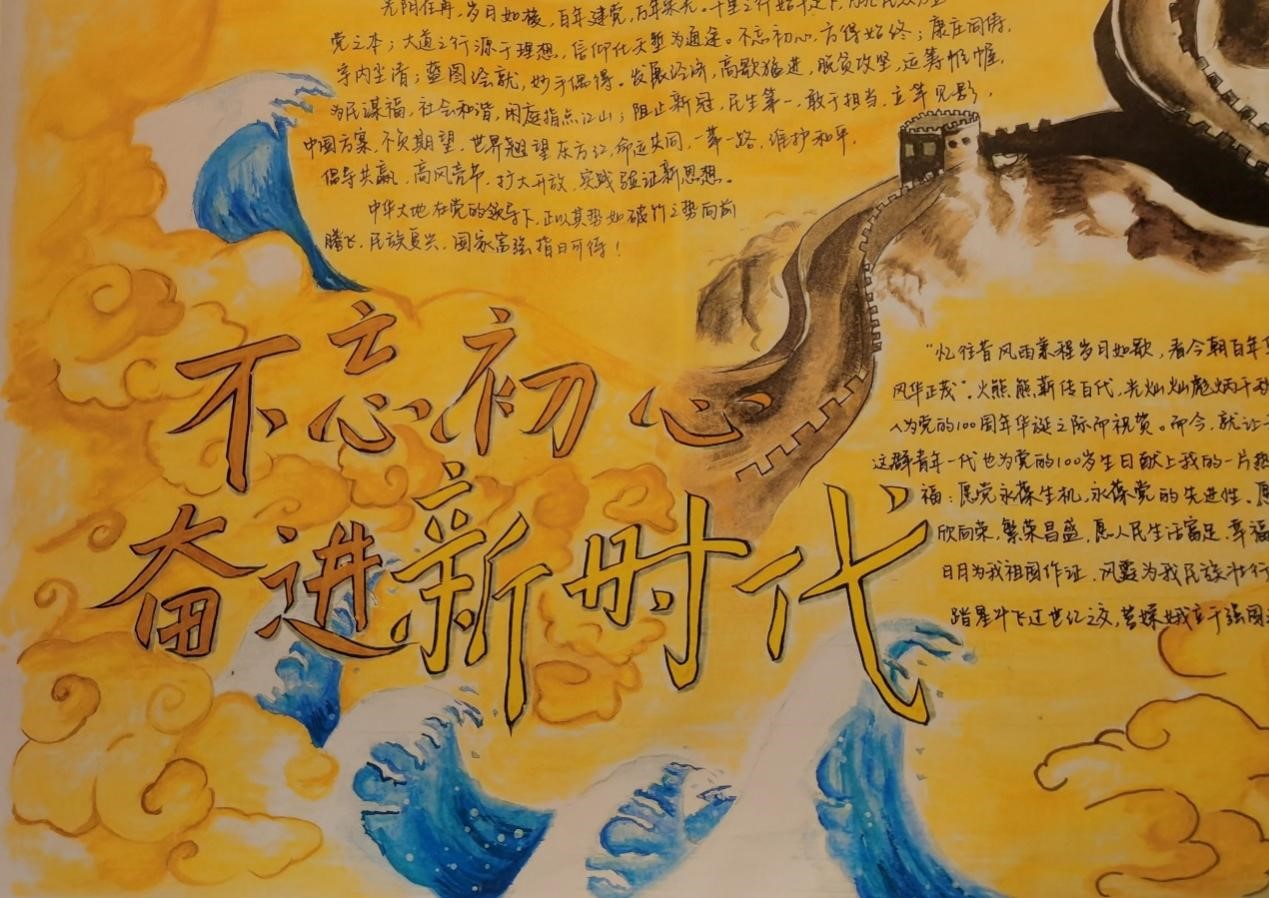 光阴荏苒，岁月如梭，百年建党，百年荣光。千里之行始于足下，
党之本；大道之行源于理想，信仰化天堑为通途。不忘初心，方得始终；康庄同俦，
宇内尘清；蓝图绘就，妙手偶得。发展经济，高歌猛进，脱贫攻坚，运筹帷幄，
为民谋福，社会和谐，闲庭指点江山；阻止新冠，民生第一，敢于担当，立竿见影，
中国方案，不负期望，世界翘望东方红，命运共同，一带一路，维护和平，
倡导共赢，高风亮节，扩大开放，实践验证新思想。
中华大地在党的领导下，正以其势如破竹之势向前
腾飞，民族复兴，国家富强指日可待！
不忘初心
奋进新时代
“忆往昔风雨兼程岁月如歌，看今朝百年
风华正茂”。火熊熊薪传百代，光灿灿彪炳千秋
人为党的100周年华诞之际而祝贺。而今，就让
这群青年一代也为党的100岁生日献上我的一片热
福：愿党永葆生机，永葆党的先进性。愿
欣向荣，繁荣昌盛，愿人民生活富足、幸福
日月为我祖国作证，风霆为我民族壮行
踏星斗飞过世纪之交，